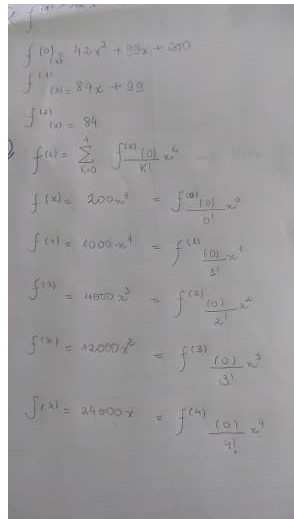 f(0)(x)= 42x² + 99x + 200
f(1)(x)= 84x + 99
f(2)(x)= 84
f(x)= 4 Σ K=0 f(K)(0)/K! x^K
f(x)= 200x⁴ = f(0)(0)/0! x⁰
f(x)= 1000x⁴ = f(1)(0)/1! x¹
f(x)= 4000x³ = f(2)(0)/2! x²
f(x)= 12000x² = f(3)(0)/3! x³
f(x)= 24000x = f(4)(0)/4! x⁴